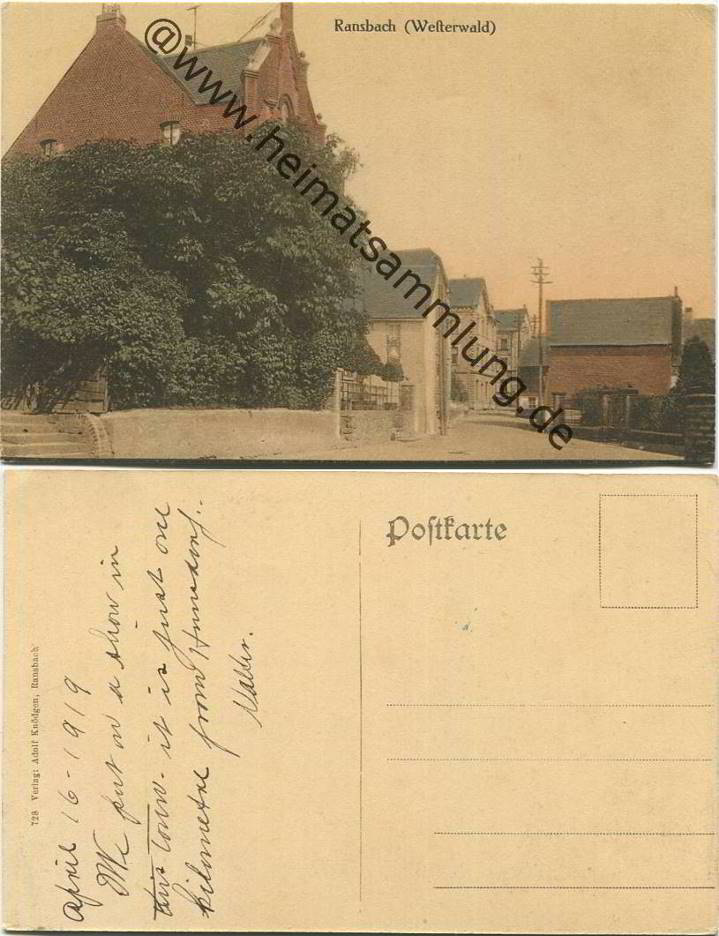 Ransbach (Weſterwald)
@www.heimatsammlung.de
Poſtkarte
728 Verlag: Adolf Knödgen, Ransbach
April 16-1919
We put on a show in
this town - it is just one
kilometre from
Walter.